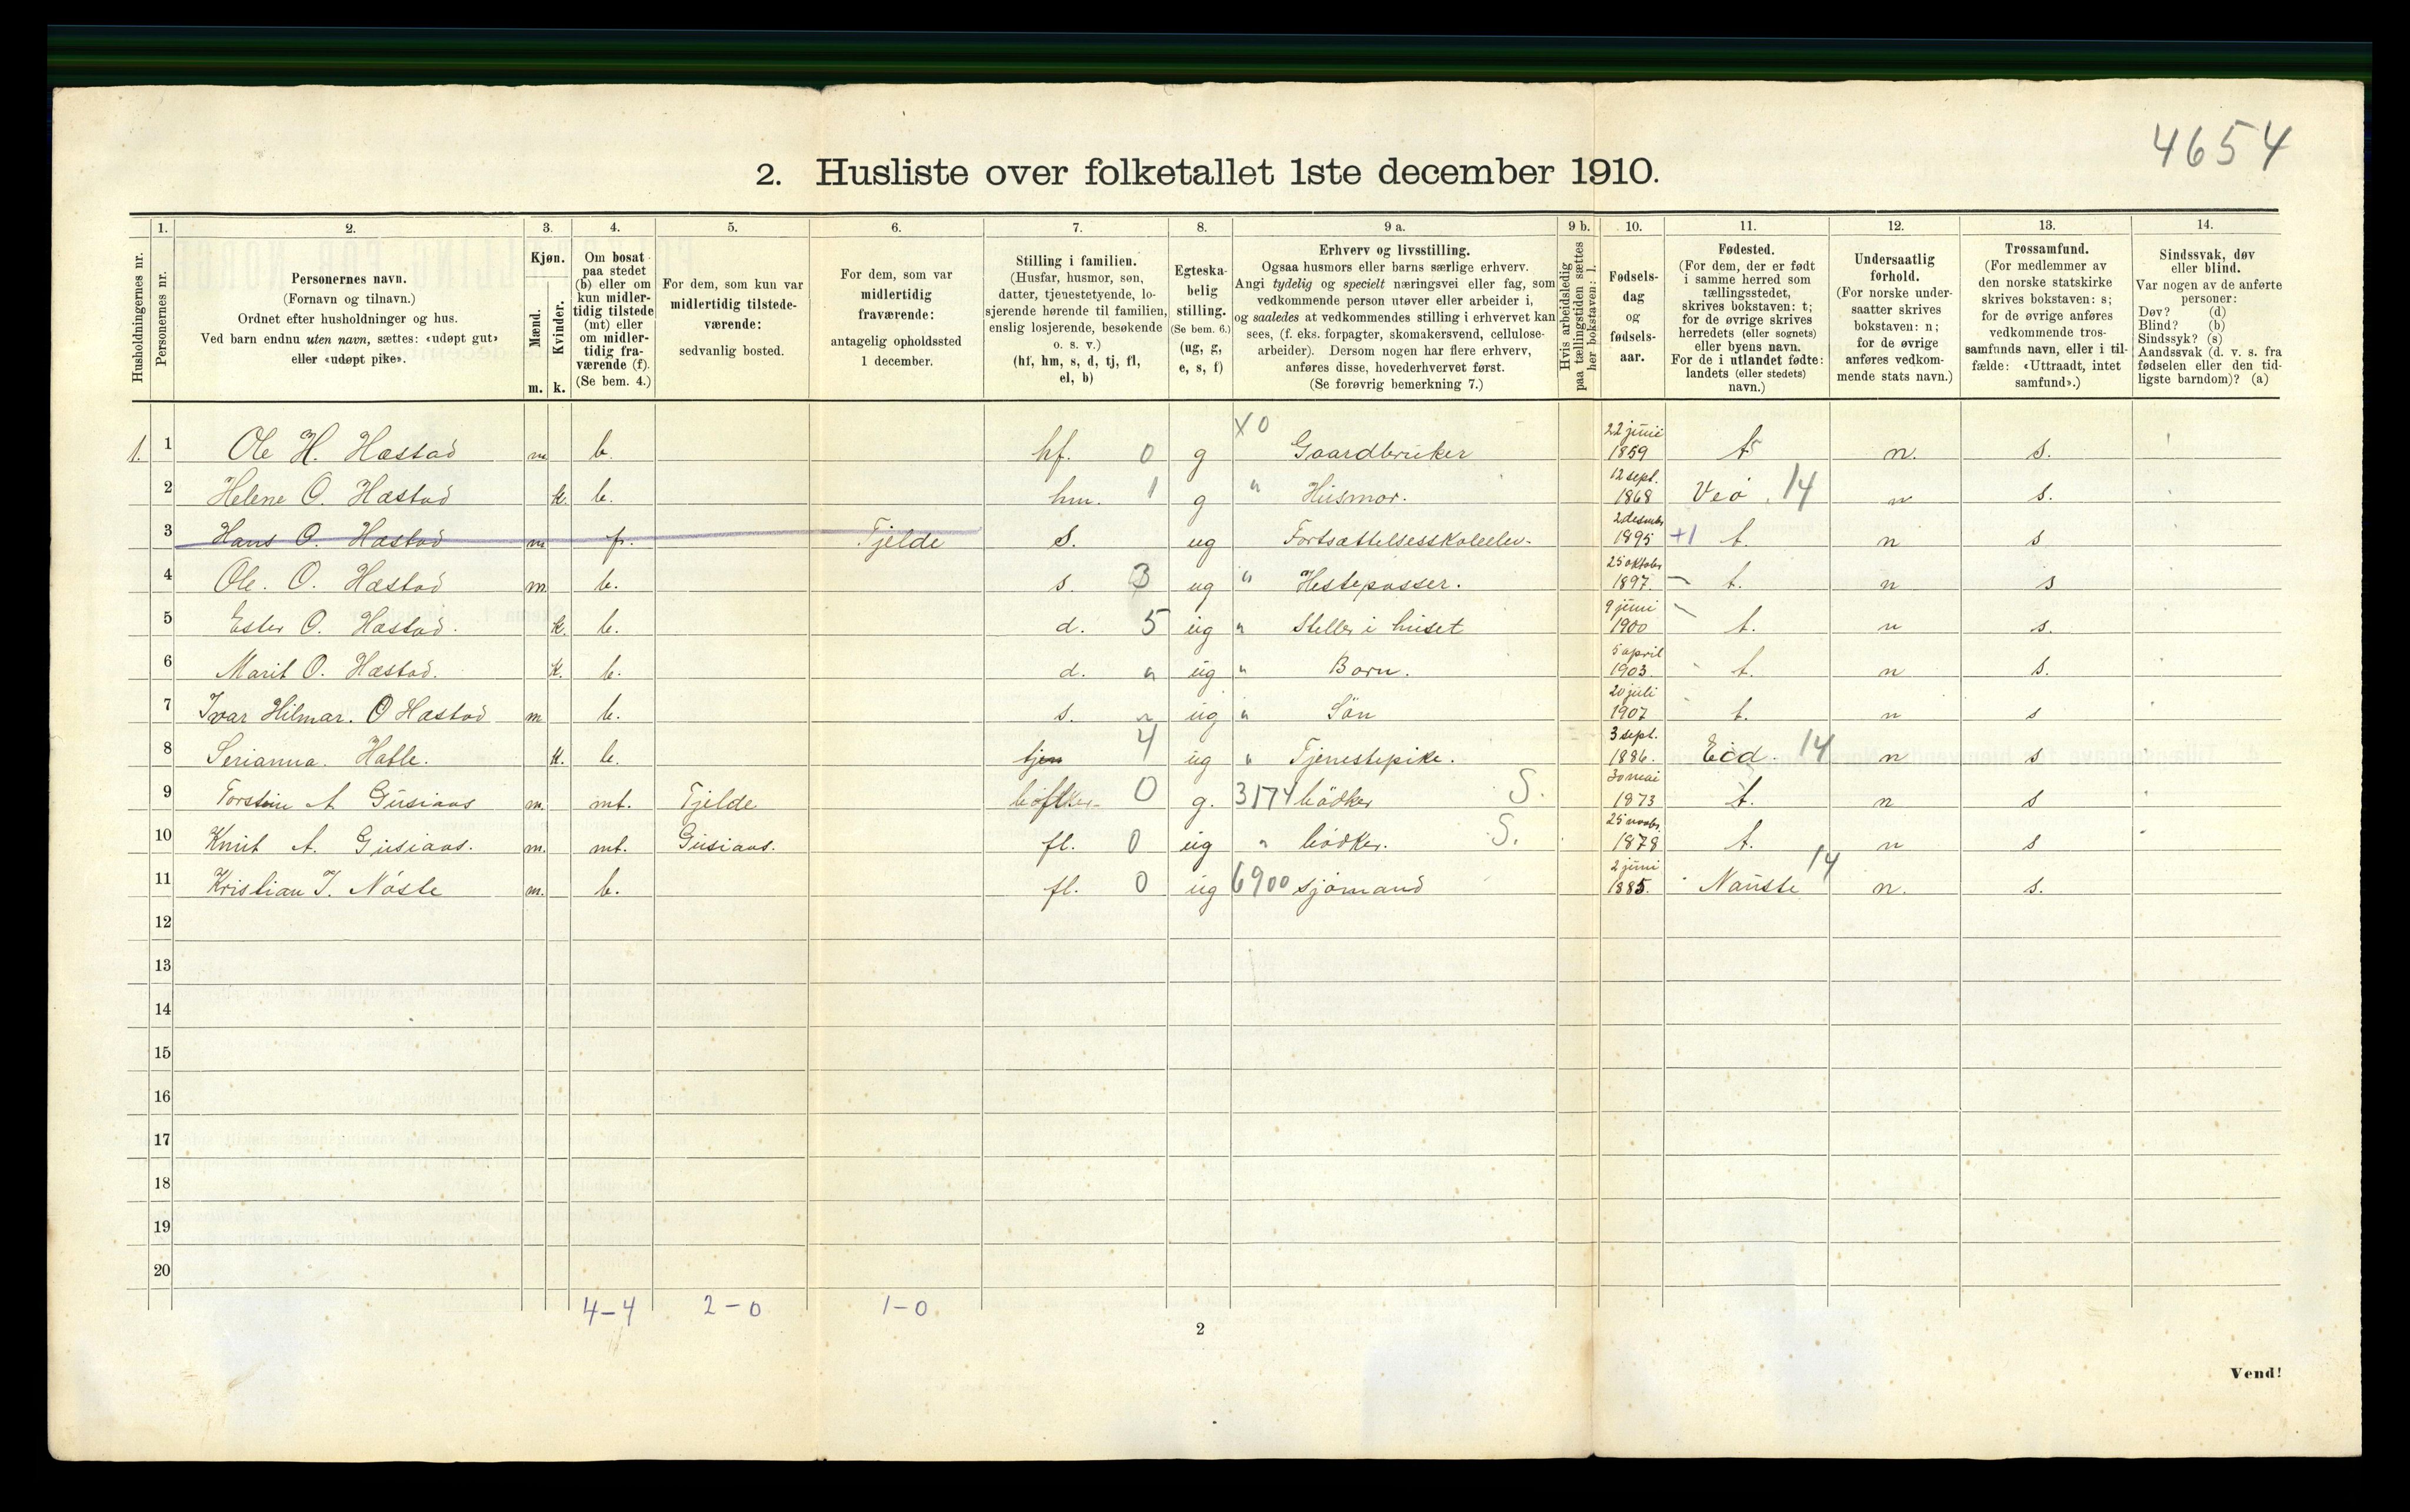 4654
2. Husliste over folketallet 1ste december 1910.
Husholdningernes nr.
1. Personernes nr.
2. Personernes navn. (Fornavn og tilnavn.) Ordnet efter husholdninger og hus. Ved barn endnu uten navn, sættes: «udøpt gut» eller «udøpt pike».
3. Kjøn. Mænd. m. Kvinder. k.
4. Om bosat paa stedet (b) eller om kun midlertidig tilstede (mt) eller om midlertidig fraværende (f). (Se bem. 4.)
5. For dem, som kun var midlertidig tilstedeværende: sedvanlig bosted.
6. For dem, som var midlertidig fraværende: antagelig opholdssted 1 december.
7. Stilling i familien. (Husfar, husmor, søn, datter, tjenestetyende, losjerende hørende til familien, enslig losjerende, besøkende o. s. v.) (hf, hm, s, d, tj, fl, el, b)
8. Egteskabelig stilling. (Se bem. 6.) (ug, g, e, s, f)
9 a. Erhverv og livsstilling. Ogsaa husmors eller barns særlige erhverv. Angi tydelig og specielt næringsvei eller fag, som vedkommende person utøver eller arbeider i, og saaledes at vedkommendes stilling i erhvervet kan sees, (f. eks. forpagter, skomakersvend, cellulosearbeider). Dersom nogen har flere erhverv, anføres disse, hovederhvervet først. (Se forøvrig bemerkning 7.)
9 b. Hvis arbeidsledig paa tællingstiden sættes her bokstaven: l.
10. Fødselsdag og fødselsaar.
11. Fødested. (For dem, der er født i samme herred som tællingsstedet, skrives bokstaven: t; for de øvrige skrives herredets (eller sognets) eller byens navn. For de i utlandet fødte: landets (eller stedets) navn.)
12. Undersaatlig forhold. (For norske undersaatter skrives bokstaven: n; for de øvrige anføres vedkommende stats navn.)
13. Trossamfund. (For medlemmer av den norske statskirke skrives bokstaven: s; for de øvrige anføres vedkommende trossamfunds navn, eller i tilfælde: «Uttraadt, intet samfund».)
14. Sindssvak, døv eller blind. Var nogen av de anførte personer: Døv? (d) Blind? (b) Sindssyk? (s) Aandssvak (d. v. s. fra fødselen eller den tidligste barndom)? (a)
1. 1 Ole H. Hæstad m b. hf. 0 g X0 Gaardbruker 22 juni 1859 t n. s.
2 Helene O. Hæstad k. b. hm. 1 g " Husmor. 12 sept. 1868 Veø. 14 n s.
3 Hans O. Hæstad m fr. Tjelde s. ug Fortsættelsesskoleelev. 2 desembr 1895 +1 t. n s
4 Ole. O. Hæstad m. b. s. 3 ug " Hestepasser. 25 oktobr 1897. t. n s
5 Ester O. Hæstad. k. b. d. 5 ug " Steller i huset 9 juni 1900 t. n s.
6 Marit O. Hæstad. k. b. d. " ug " Barn. 5 april 1903. t. n s.
7 Ivar Hilmar. O Hæstad m. b. s. " ug " Søn 20 juli 1907 t. n s
8 Serianna. Hatle. k. b. tjen 4 ug " Tjenestepike. 3 sept. 1886. Eid. 14 n s
9 Torstein A Gusiaas m. mt. Tjelde 0 g. 3174 bødker S. 30 mai 1873 t. n s
10 Knut A. Gusiaas. m. mt. Gusiaas. fl. 0 ug " bødker. S. 25 novbr. 1878 t. n s
11 Kristian J. Nøste m. b. fl. 0 ug 6900 sjømand 2 juni 1885. Nauste 14 n. s.
12
13
14
15
16
17
18
19
20
4-4 2-0 1-0
2
Vend!